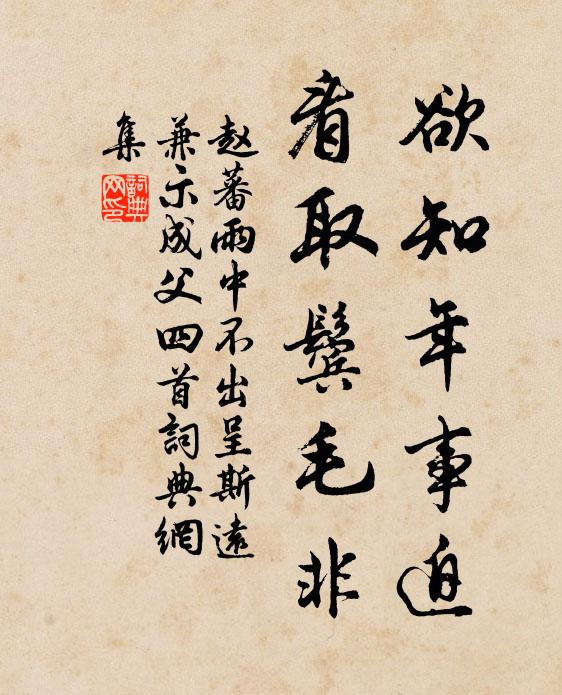 欲知年事迫
看取鬓毛非
赵蕃雨中不出呈斯遠
兼示成父四首詞典網
集
詞典
网印